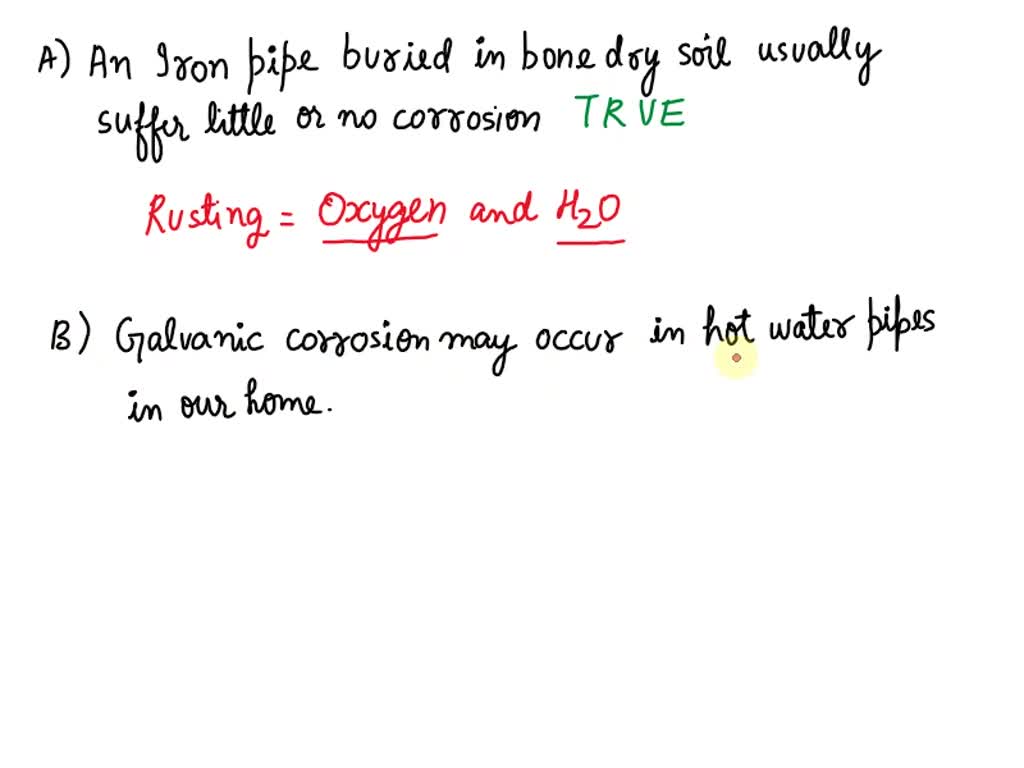 A) An Iron pipe buried in bone dry soil usually
suffer little or no corrosion TRUE
Rusting = Oxygen and H2O
B) Galvanic corrosion may occur in hot water pipes
in our home.